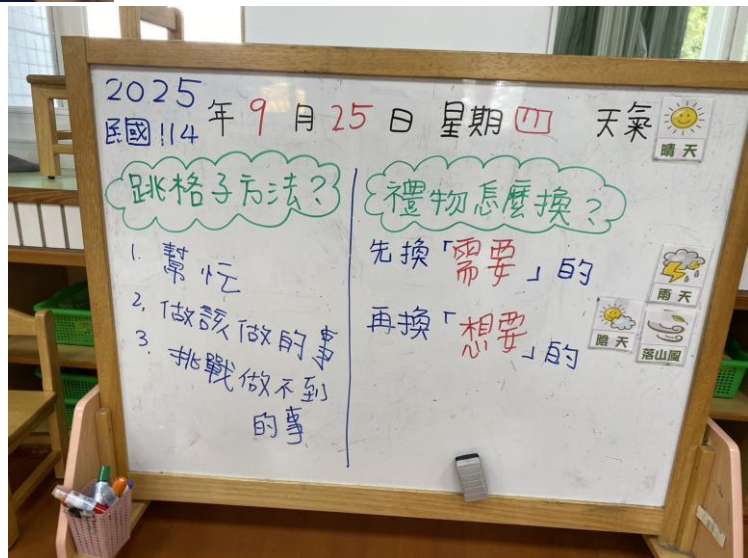 2025
民國114 年 9 月 25 日 星期四 天氣
晴天
跳格子方法?
1. 幫忙
2. 做該做的事
3. 挑戰做不到
的事
禮物怎麼換?
先換「需要」的
再換「想要」的
雨天
陰天
落山風